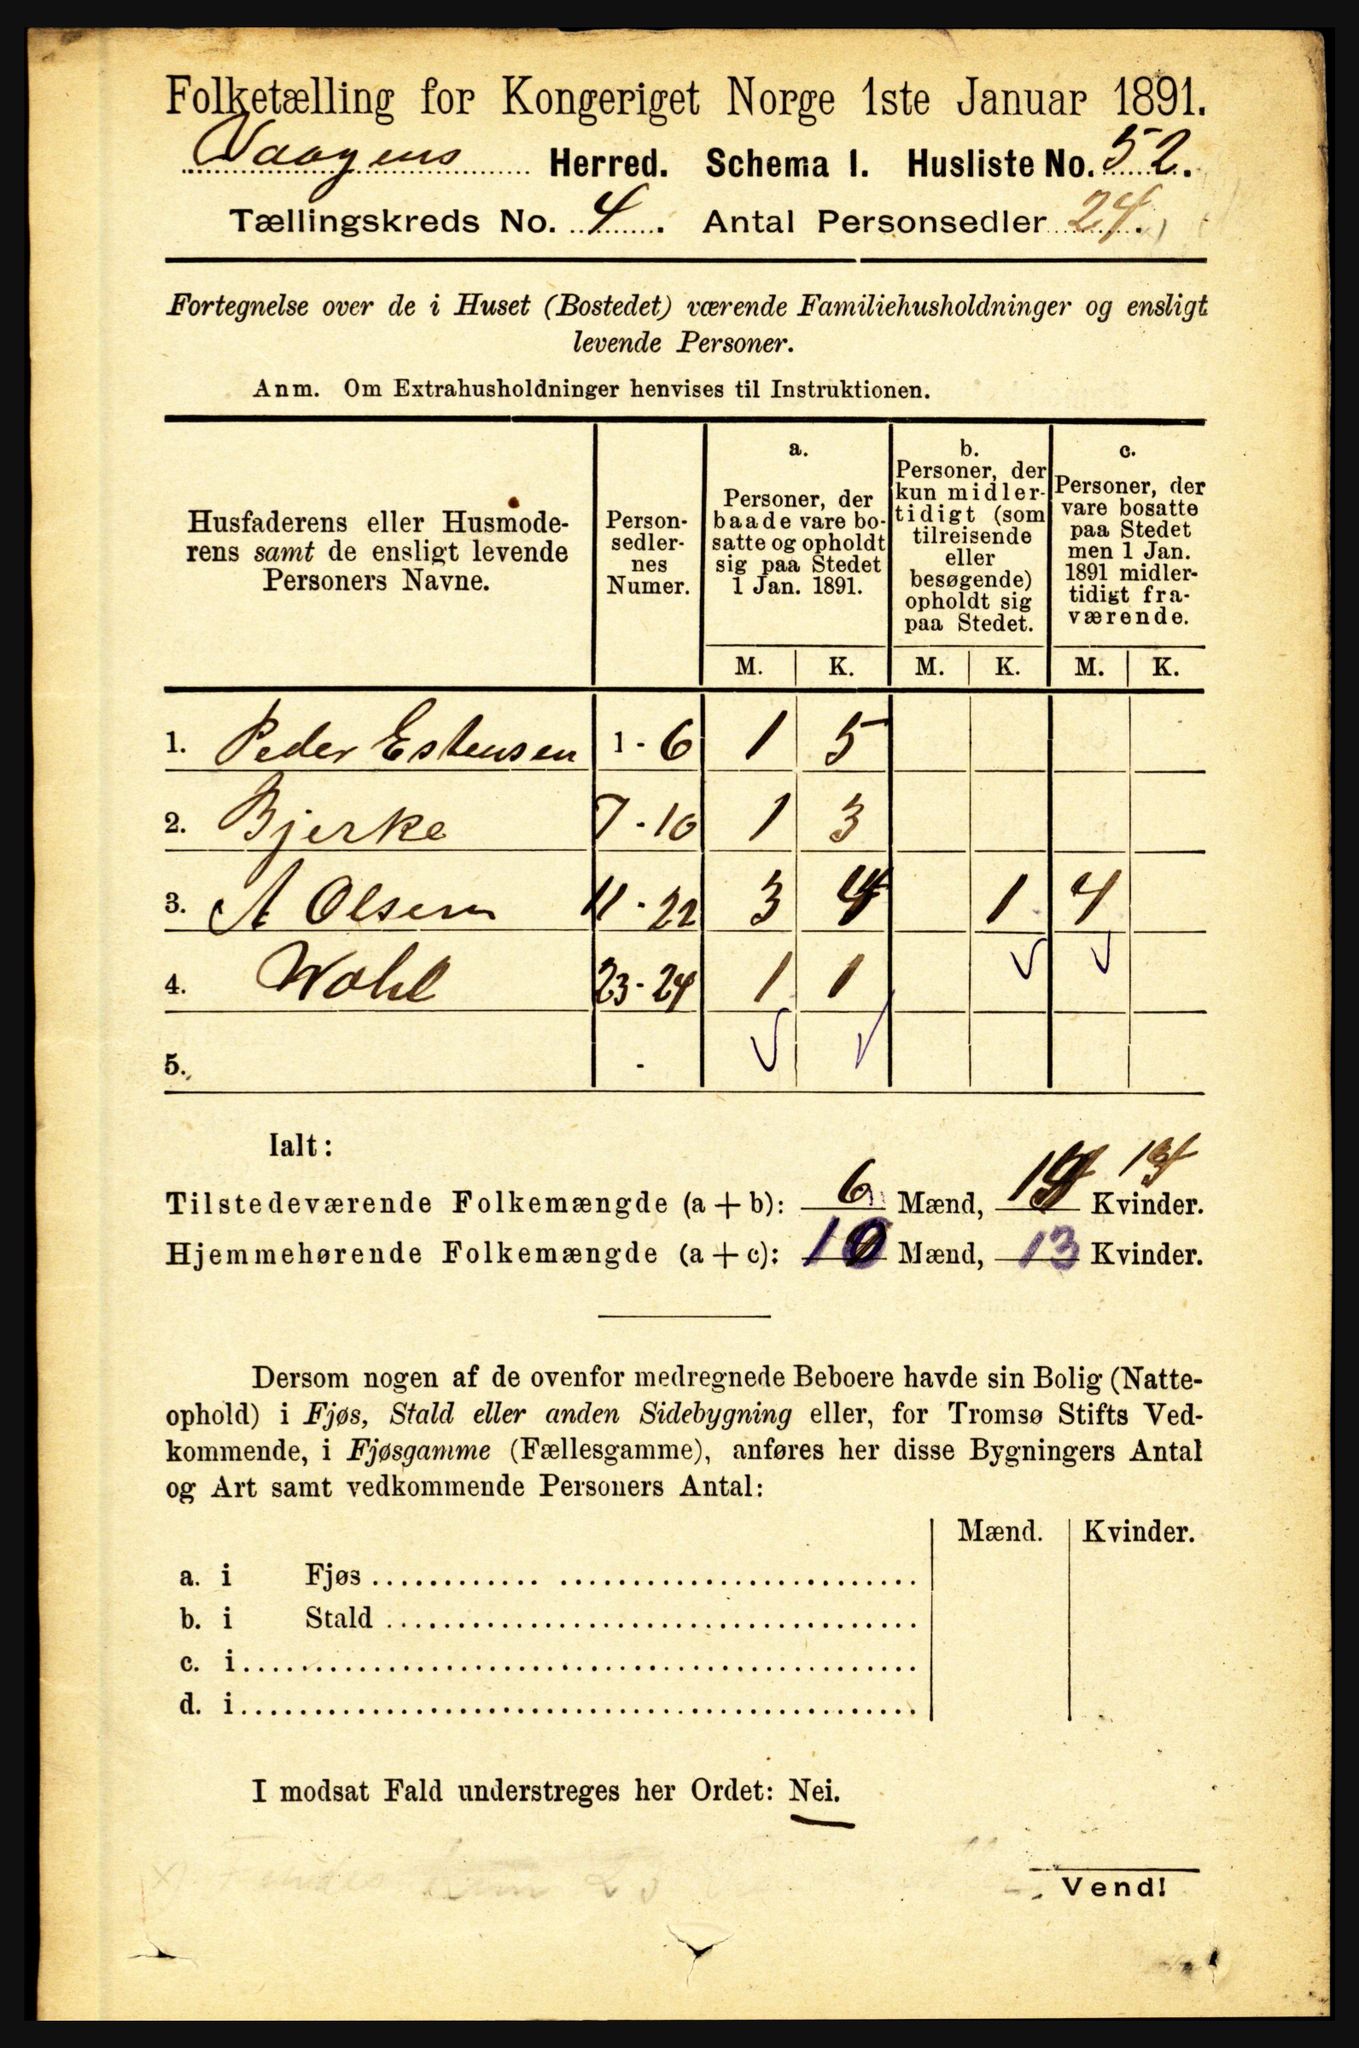 Folketælling for Kongeriget Norge 1ste Januar 1891.
Vaagens Herred. Schema I. Husliste No. 52.
Tællingskreds No. 4. Antal Personsedler 24.
Fortegnelse over de i Huset (Bostedet) værende Familiehusholdninger og ensligt
levende Personer.
Anm. Om Extrahusholdninger henvises til Instruktionen.
Husfaderens eller Husmode-
rens samt de ensligt levende
Personers Navne.
Person-
sedler-
nes
Numer.
a.
Personer, der
baade vare bo-
satte og opholdt
sig paa Stedet
1 Jan. 1891.
b.
Personer, der
kun midler-
tidigt (som
tilreisende
eller
besøgende)
opholdt sig
paa Stedet.
c.
Personer, der
vare bosatte
paa Stedet
men 1 Jan.
1891 midler-
tidigt fra-
værende.
M. K. M. K. M. K.
1. Peder Estensen 1 - 6 1 5
2. Bjerke 7 - 10 1 3
3. A Olsen 11 - 22 3 4 1 4
4. Wohl 23 - 24 1 1
5. -
Ialt:
13
Tilstedeværende Folkemængde (a + b): 6 Mænd, Kvinder.
Hjemmehørende Folkemængde (a + c): 10 Mænd, 13 Kvinder.
Dersom nogen af de ovenfor medregnede Beboere havde sin Bolig (Natte-
ophold) i Fjøs, Stald eller anden Sidebygning eller, for Tromsø Stifts Ved-
kommende, i Fjøsgamme (Fællesgamme), anføres her disse Bygningers Antal
og Art samt vedkommende Personers Antal:
Mænd. Kvinder.
a. i Fjøs
b. i Stald
c. i
d. i
I modsat Fald understreges her Ordet: Nei.
kun 23
Vend!